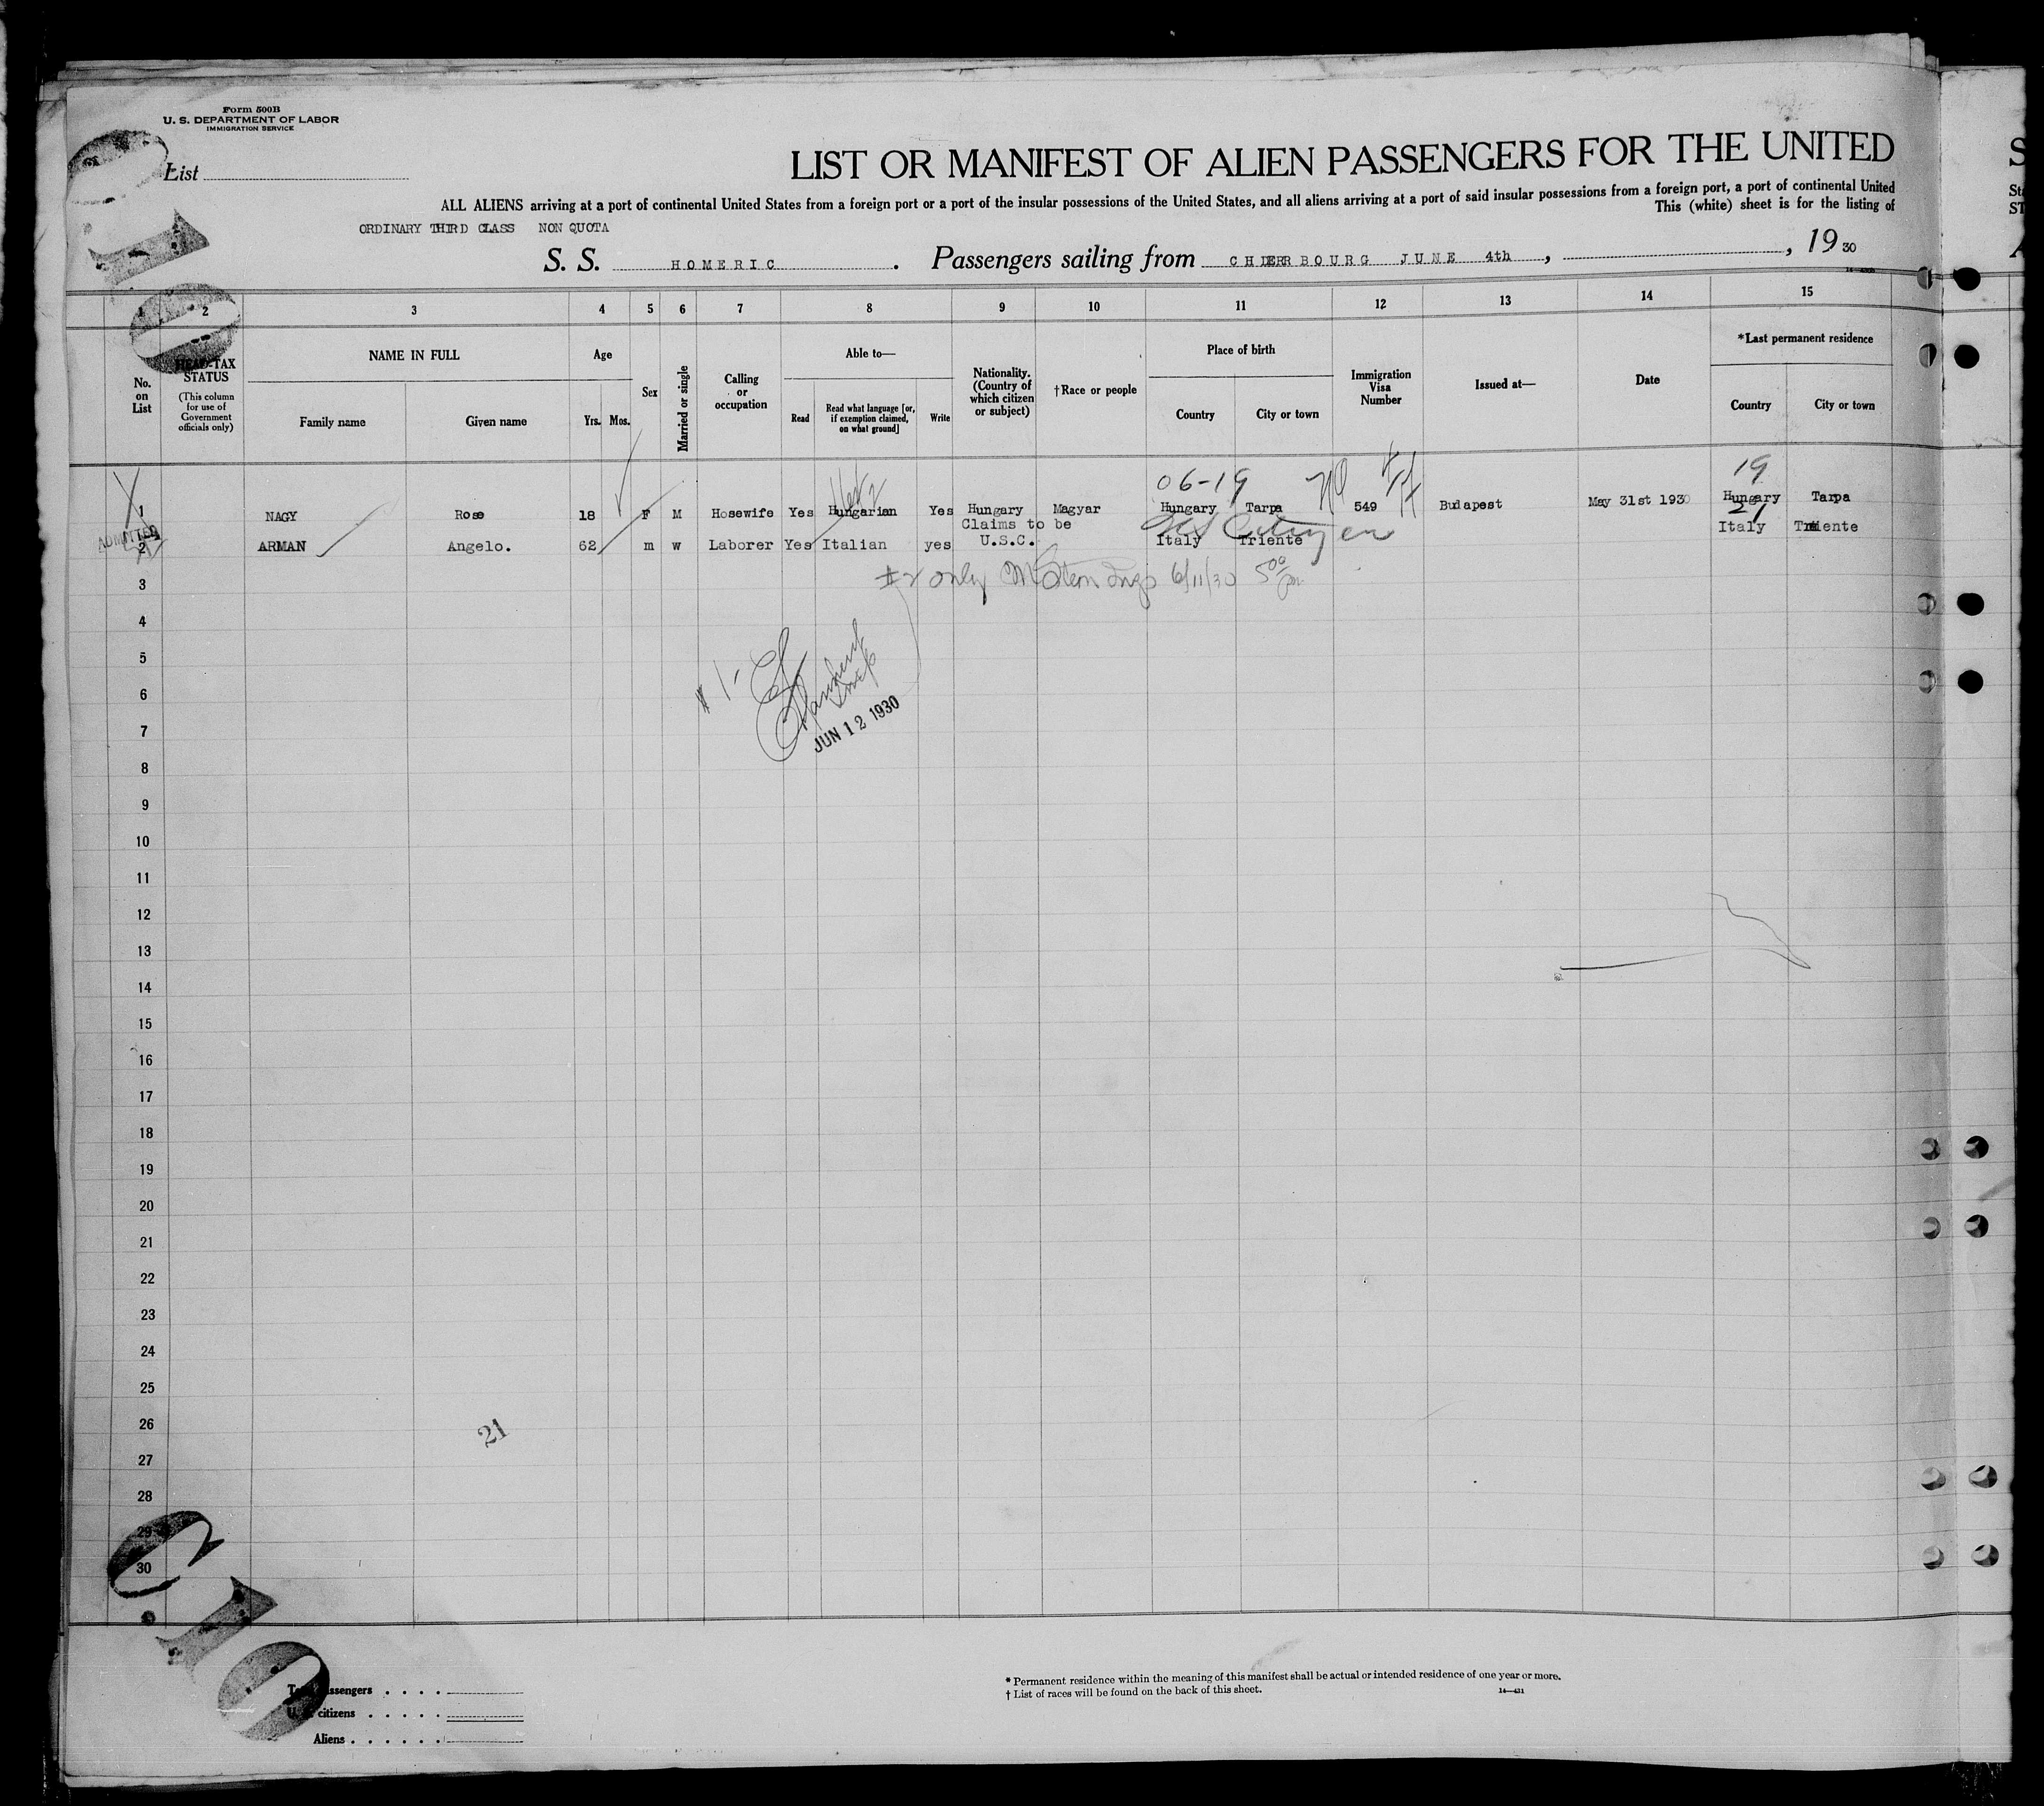 Form 500B
U. S. DEPARTMENT OF LABOR
IMMIGRATION SERVICE
List
LIST OR MANIFEST OF ALIEN PASSENGERS FOR THE UNITED
ALL ALIENS arriving at a port of continental United States from a foreign port or a port of the insular possessions of the United States, and all aliens arriving at a port of said insular possessions from a foreign port, a port of continental United
This (white) sheet is for the listing of
ORDINARY THIRD CLASS NON QUOTA
S. S. HOMERIC. Passengers sailing from CHERBOURG JUNE 4th, , 1930
1 2 3 4 5 6 7 8 9 10 11 12 13 14 15
No. on List
HEAD-TAX STATUS
(This column for use of Government officials only)
NAME IN FULL
Family name
Given name
Age
Yrs. Mos.
Sex
Married or single
Calling or occupation
Able to—
Read
Read what language [or, if exemption claimed, on what ground]
Write
Nationality. (Country of which citizen or subject)
†Race or people
Place of birth
Country
City or town
Immigration Visa Number
Issued at—
Date
*Last permanent residence
Country
City or town
06-19 19
1 NAGY Rose 18 F M Hosewife Yes Hungarian Yes Hungary Magyar Hungary Tarpa 549 Budapest May 31st 1930 Hungary Tarpa
ADMITTED
Claims to be
US Citizen
21
2 ARMAN Angelo. 62 m w Laborer Yes Italian yes U.S.C. Italy Triente Italy Triente
3
#2 only 6/11/30 5 00 pm
4
5
6
# 1-
7
JUN 12 1930
8
9
10
11
12
13
14
15
16
17
18
19
20
21
22
23
24
25
26
21
27
28
29
30
010
Total passengers
U. S. citizens
Aliens
* Permanent residence within the meaning of this manifest shall be actual or intended residence of one year or more.
† List of races will be found on the back of this sheet.
14—431